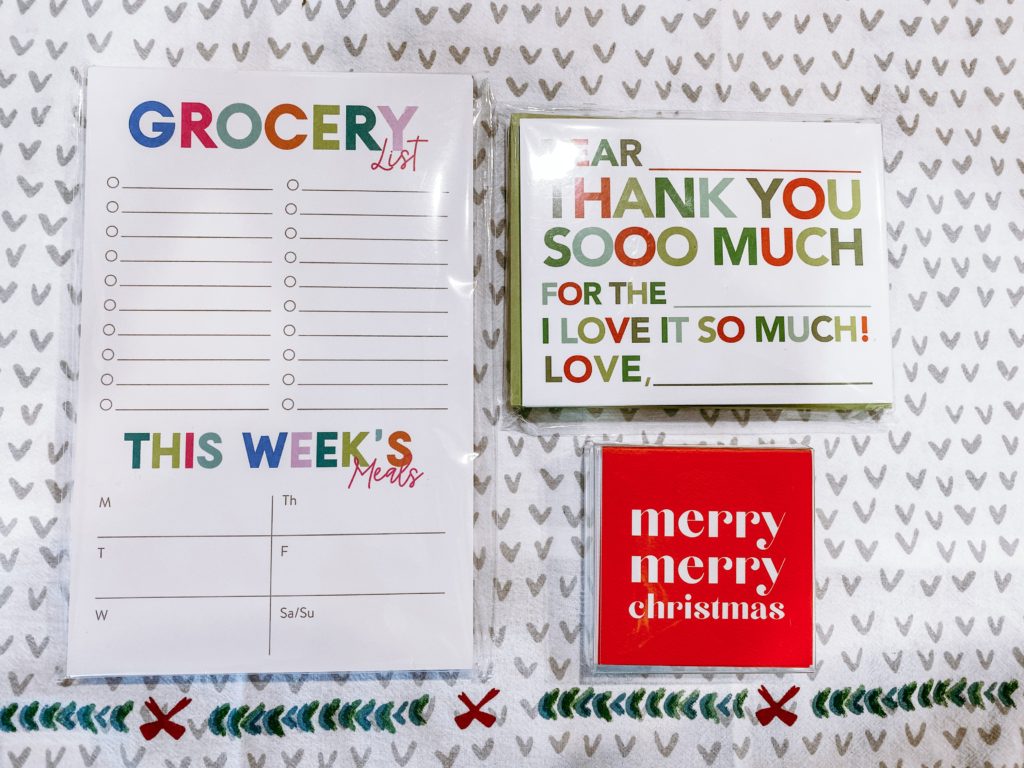 GROCERY
List
THIS WEEK'S
Meals
M
Th
T
F
W
Sa/Su
DEAR
THANK YOU
SOOO MUCH
FOR THE
I LOVE IT SO MUCH!
LOVE,
merry
merry
christmas